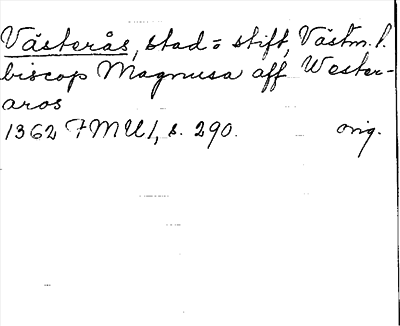 Västerås, stad = stift, Västm. l.
biscop Magnusa aff Wester-
aros
1362 FMU 1, s. 290. orig.